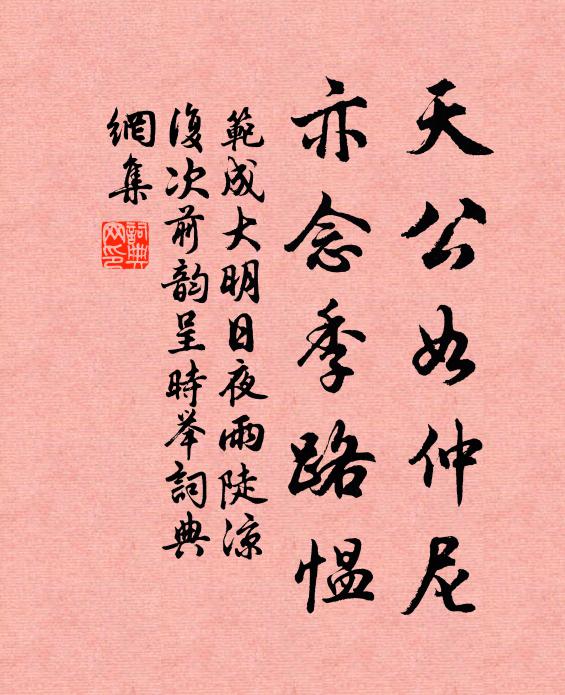 天公如仲尼
亦念季路愠
範成大明日夜雨陡涼
復次前韵呈時举詞典
網集
詞典
网印